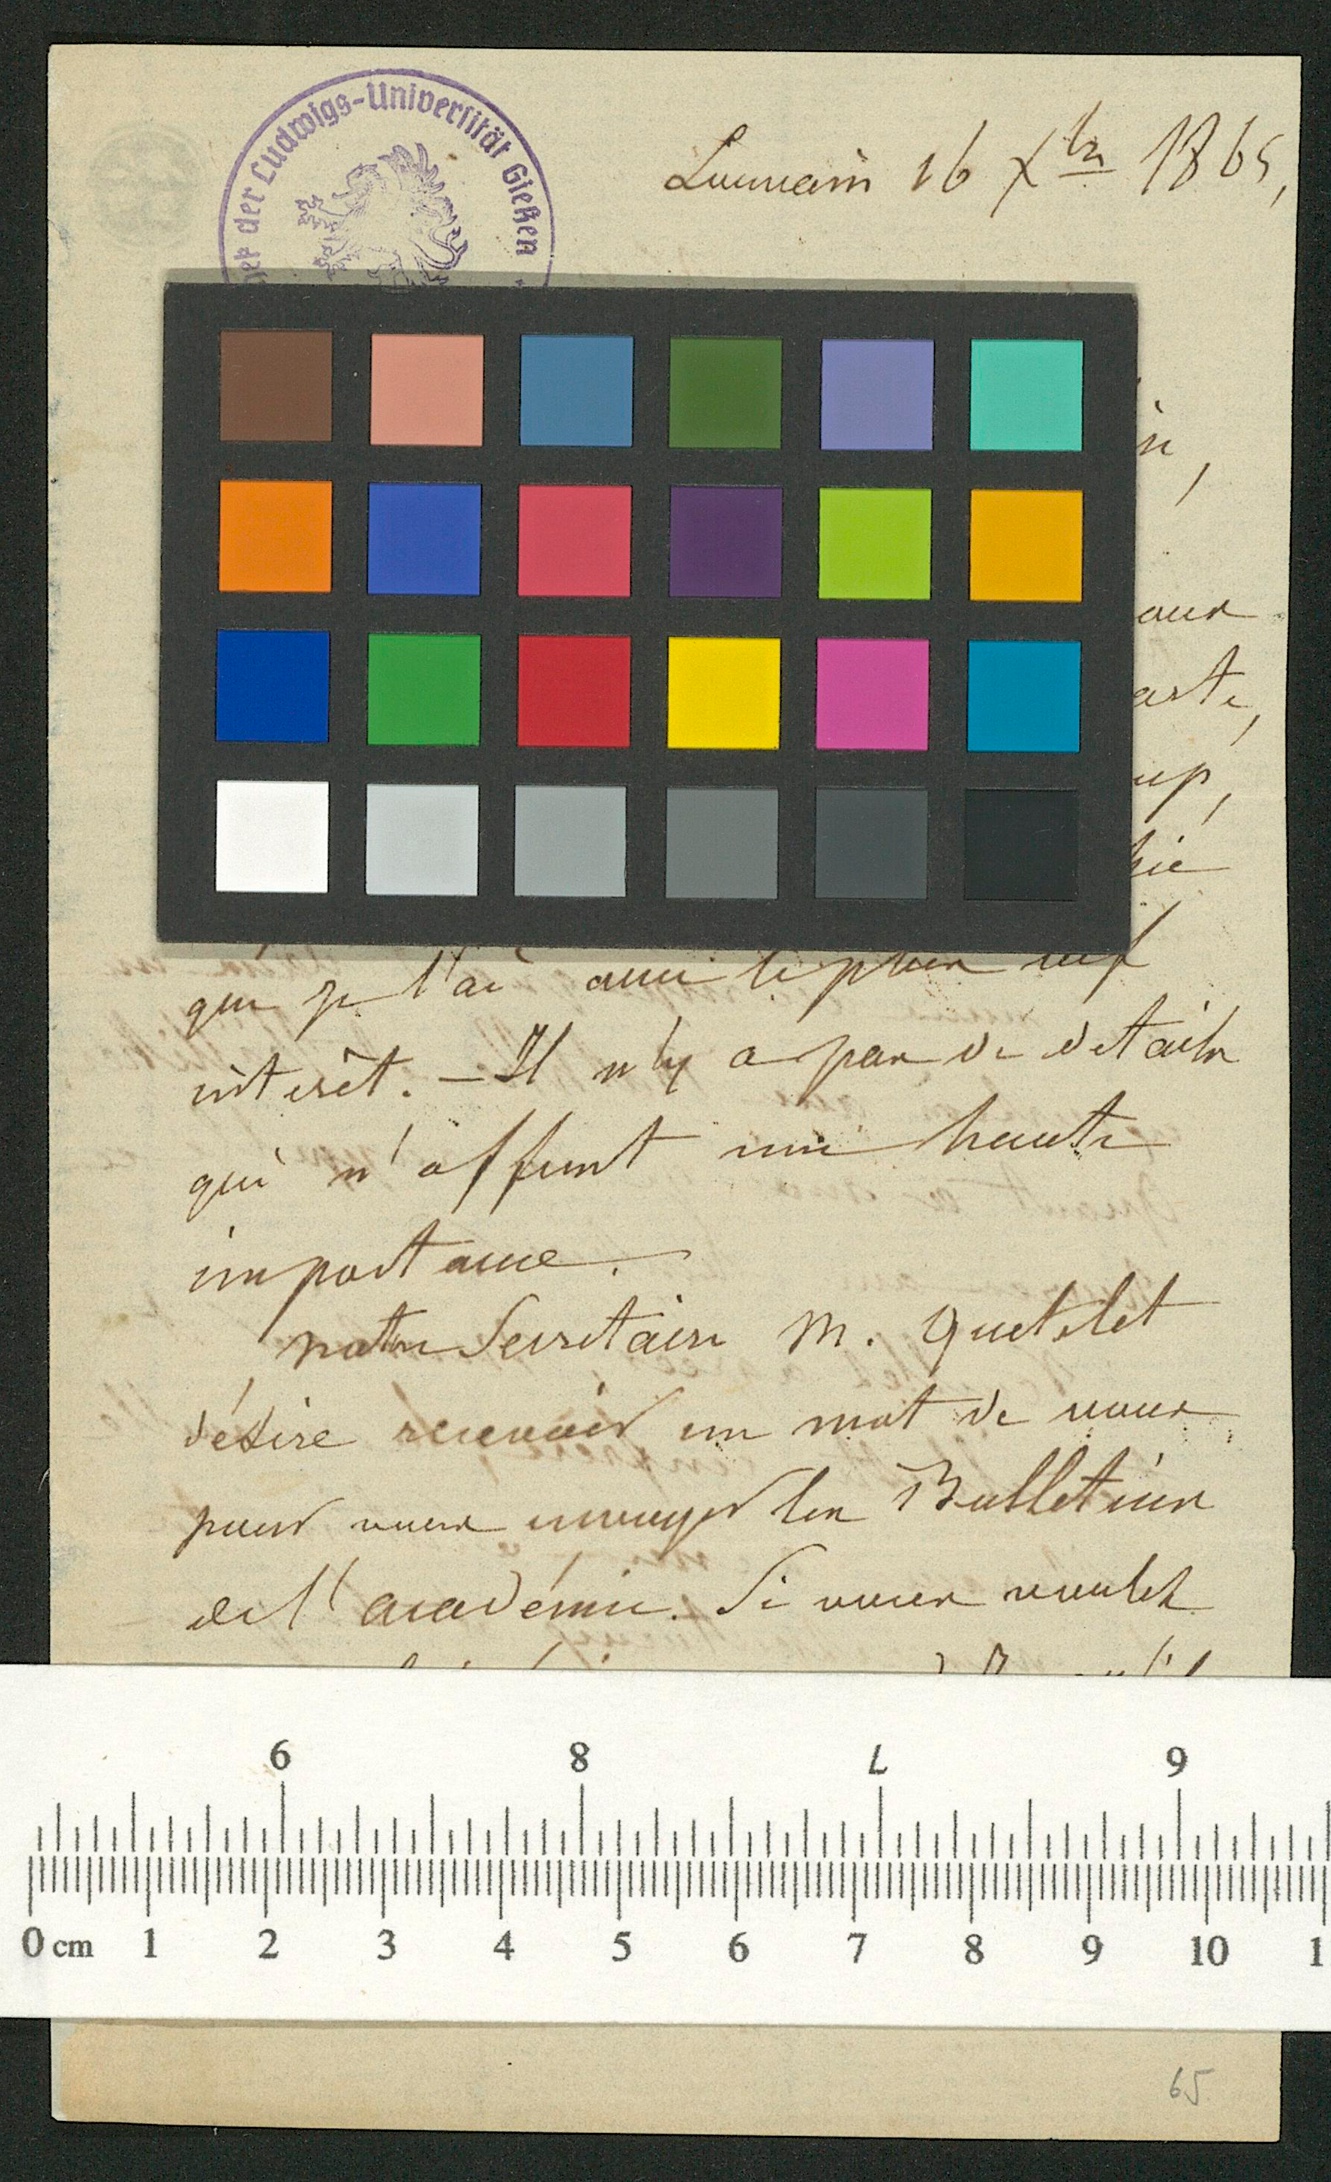 Louvain 16 Xbre 1865,
der Ludwigs-Universität Gießen
que je l'ai avec le plus vif
intérêt. — Il n'y a pas de détails
qui n'offrent une haute
importance.
notre Secrétaire M. Quetelet
désire recevoir un mot de vous
pour vous envoyer les Bulletins
de l'académie. Si vous voulez
6 8 7 9
0 cm 1 2 3 4 5 6 7 8 9 10 1
65